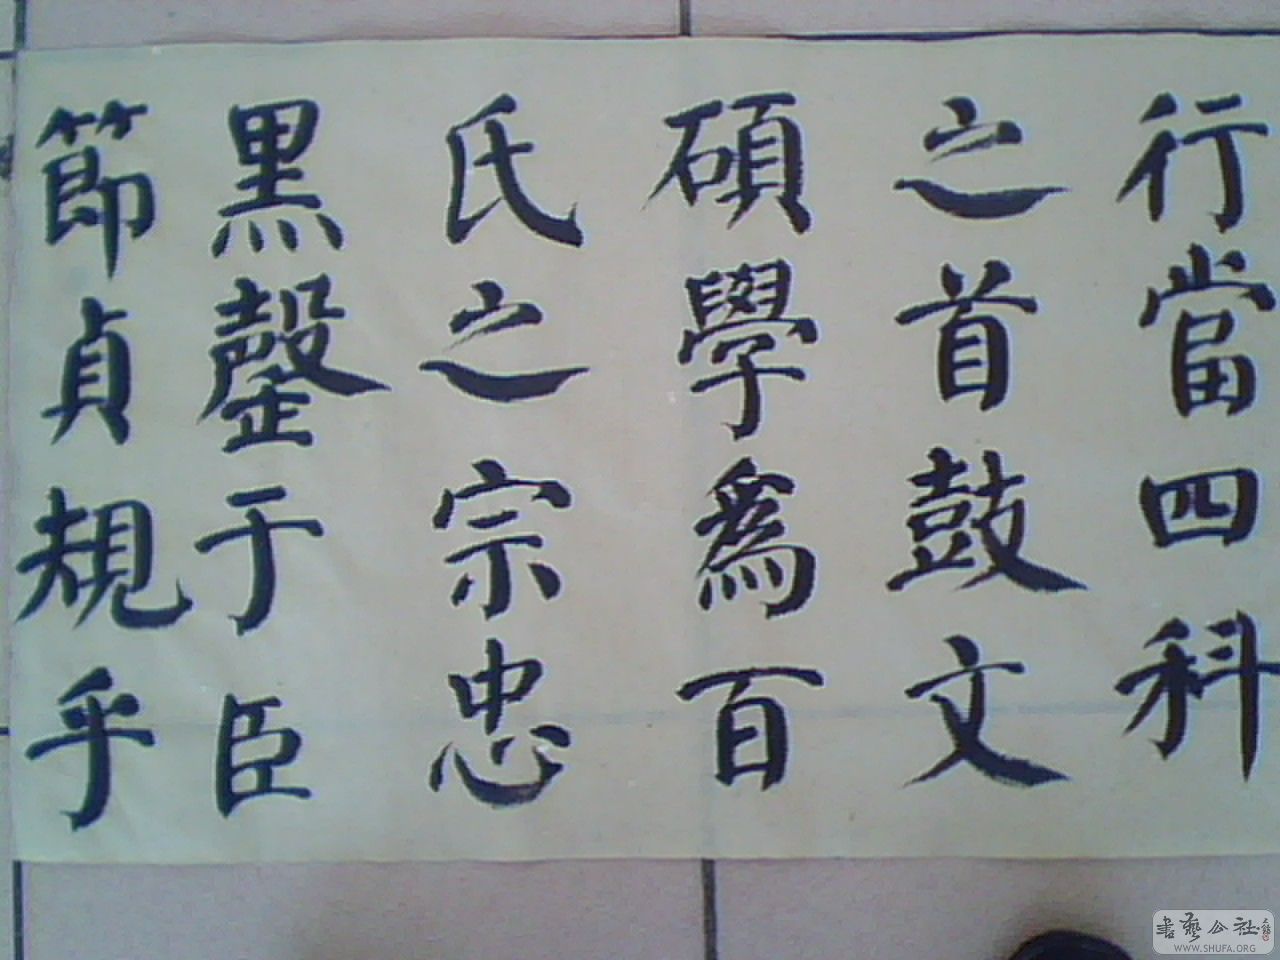 行當四科
之首鼓文
碩學爲百
氏之宗忠
黑罄于臣
節貞規乎
書藝公社
WWW.SHUFA.ORG